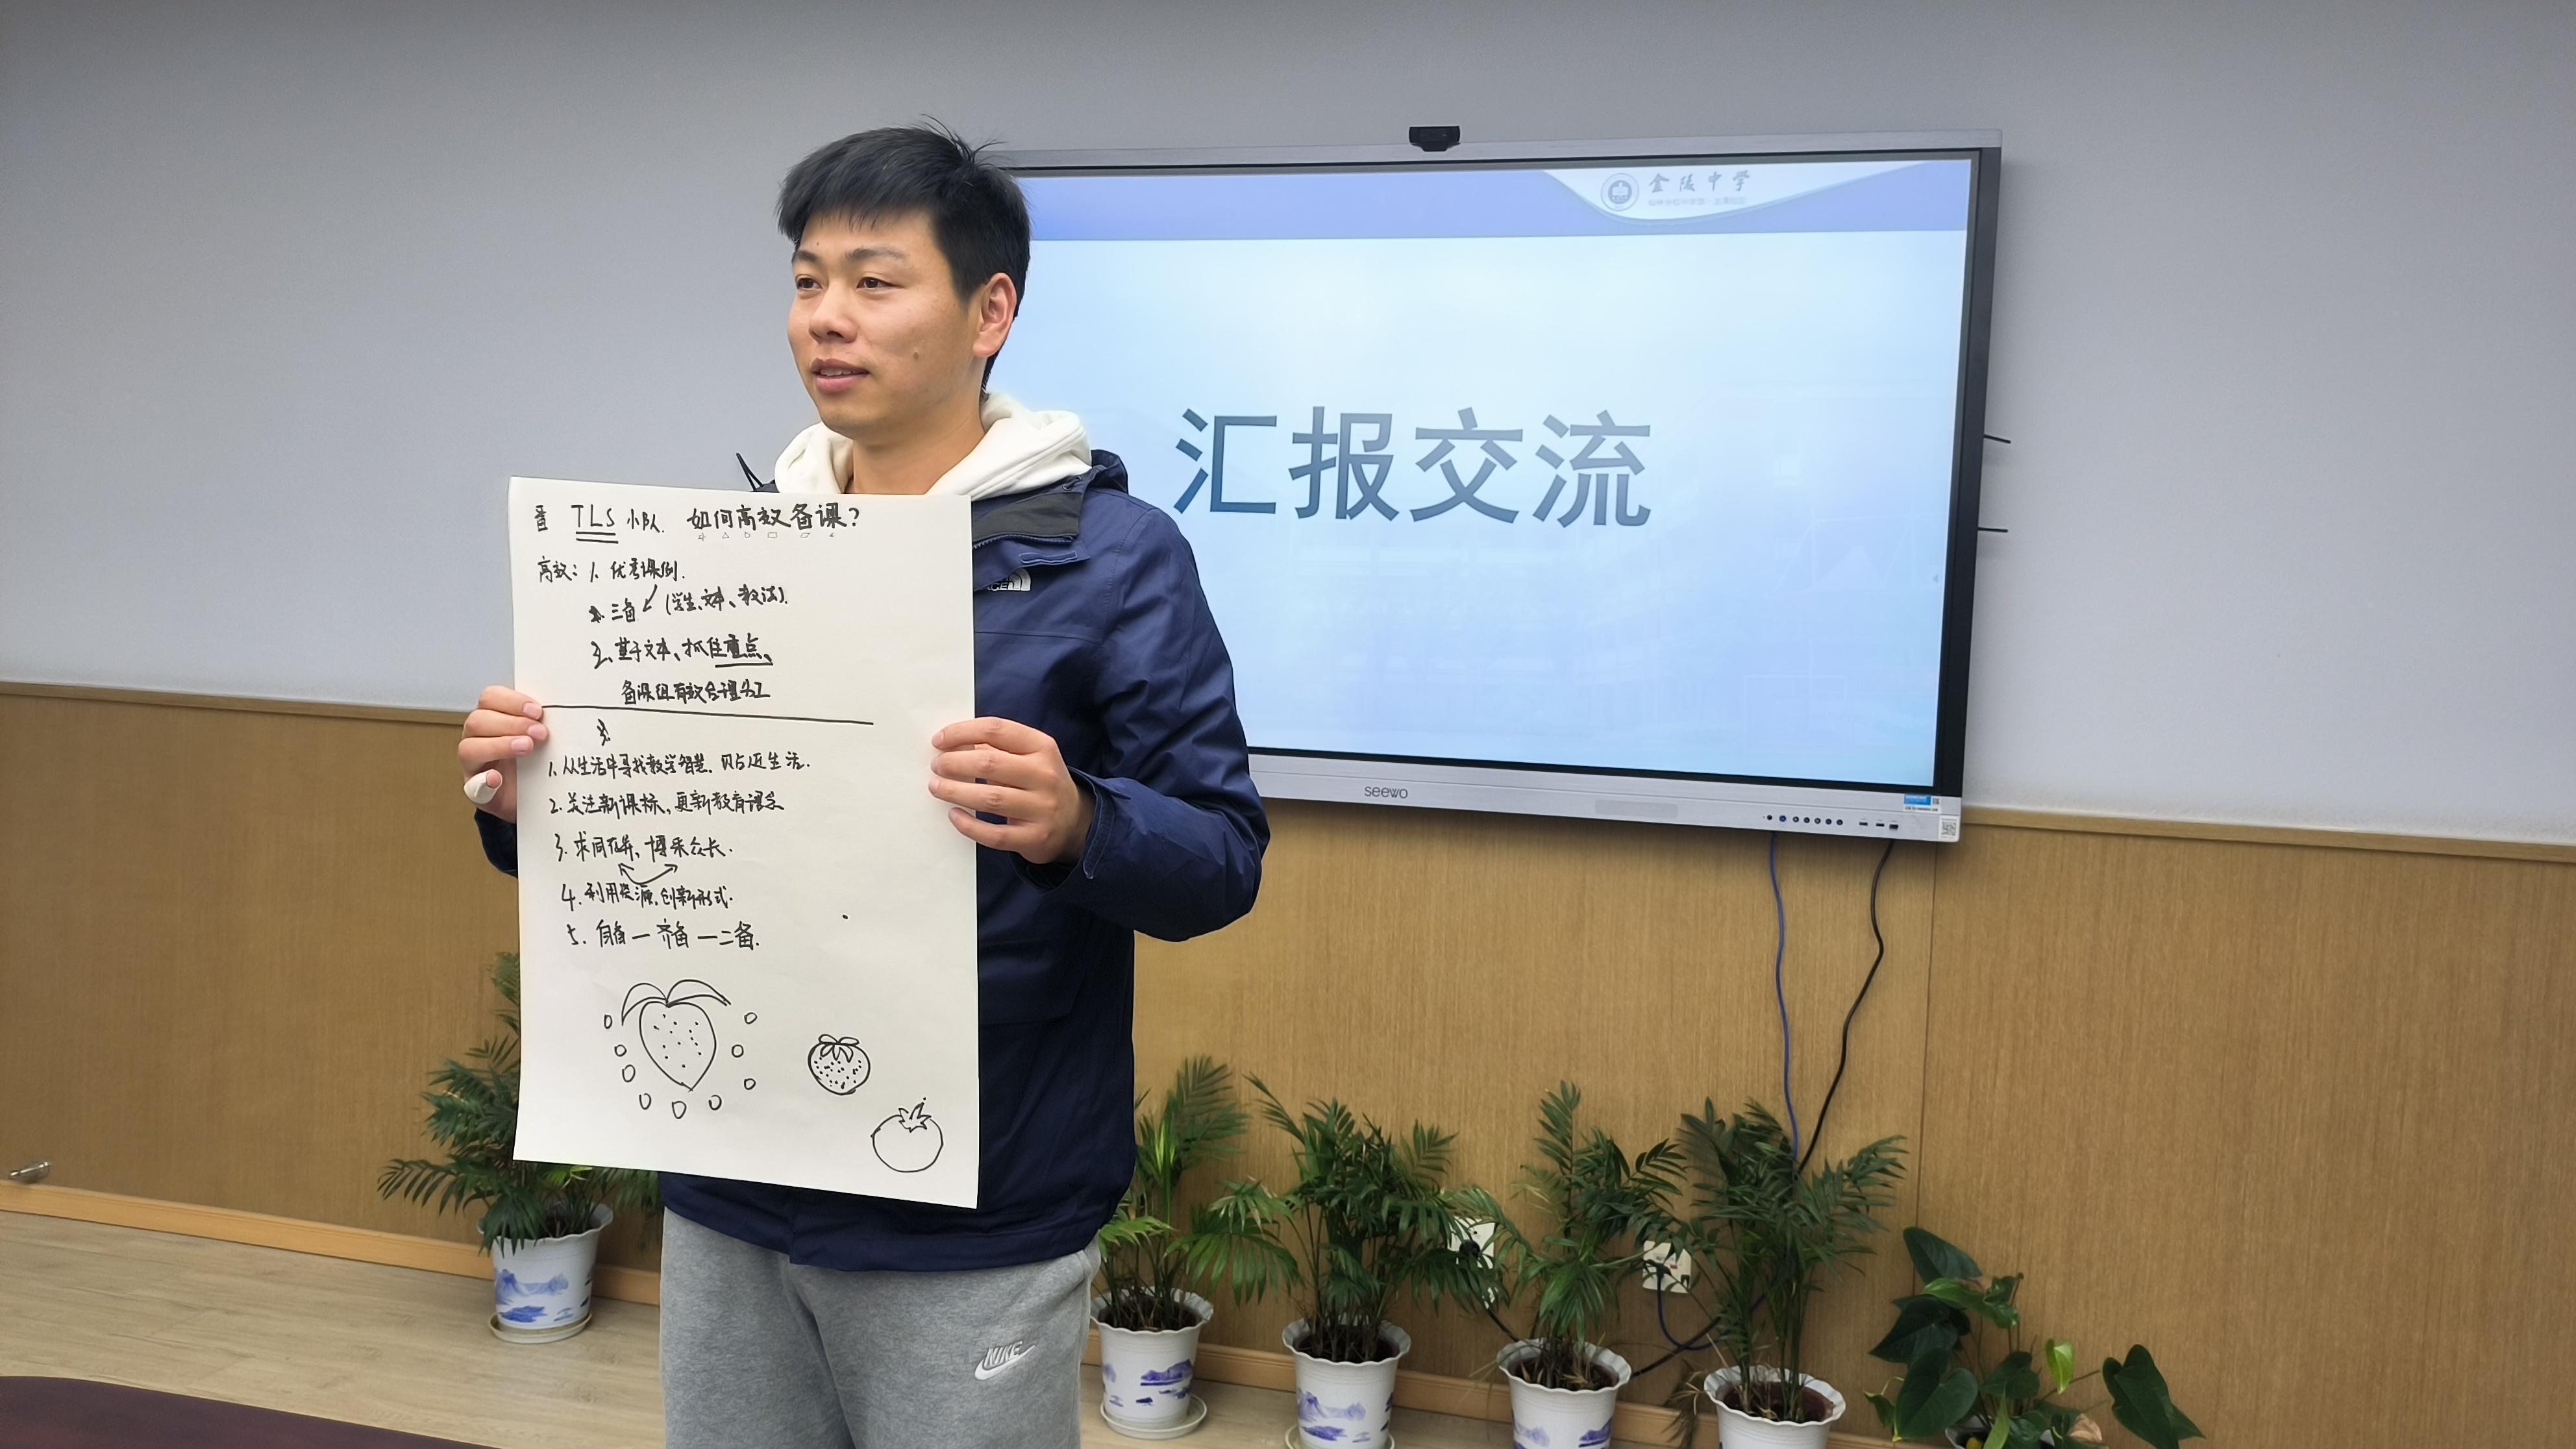 金陵中学
汇报交流
seewo
TLS 小队. 如何高效备课?
高效: 1. 优秀课例.
三备 (学生、文本、教法).
2、基于文本、抓住重点、
备课组有效合理分工
1. 从生活中寻找教学智慧. 贴近生活.
2. 关注新课标, 更新教育理念
3. 求同存异, 博采众长.
4. 利用资源, 创新形式.
5. 自备 — 齐备 — 二备.
NIKE